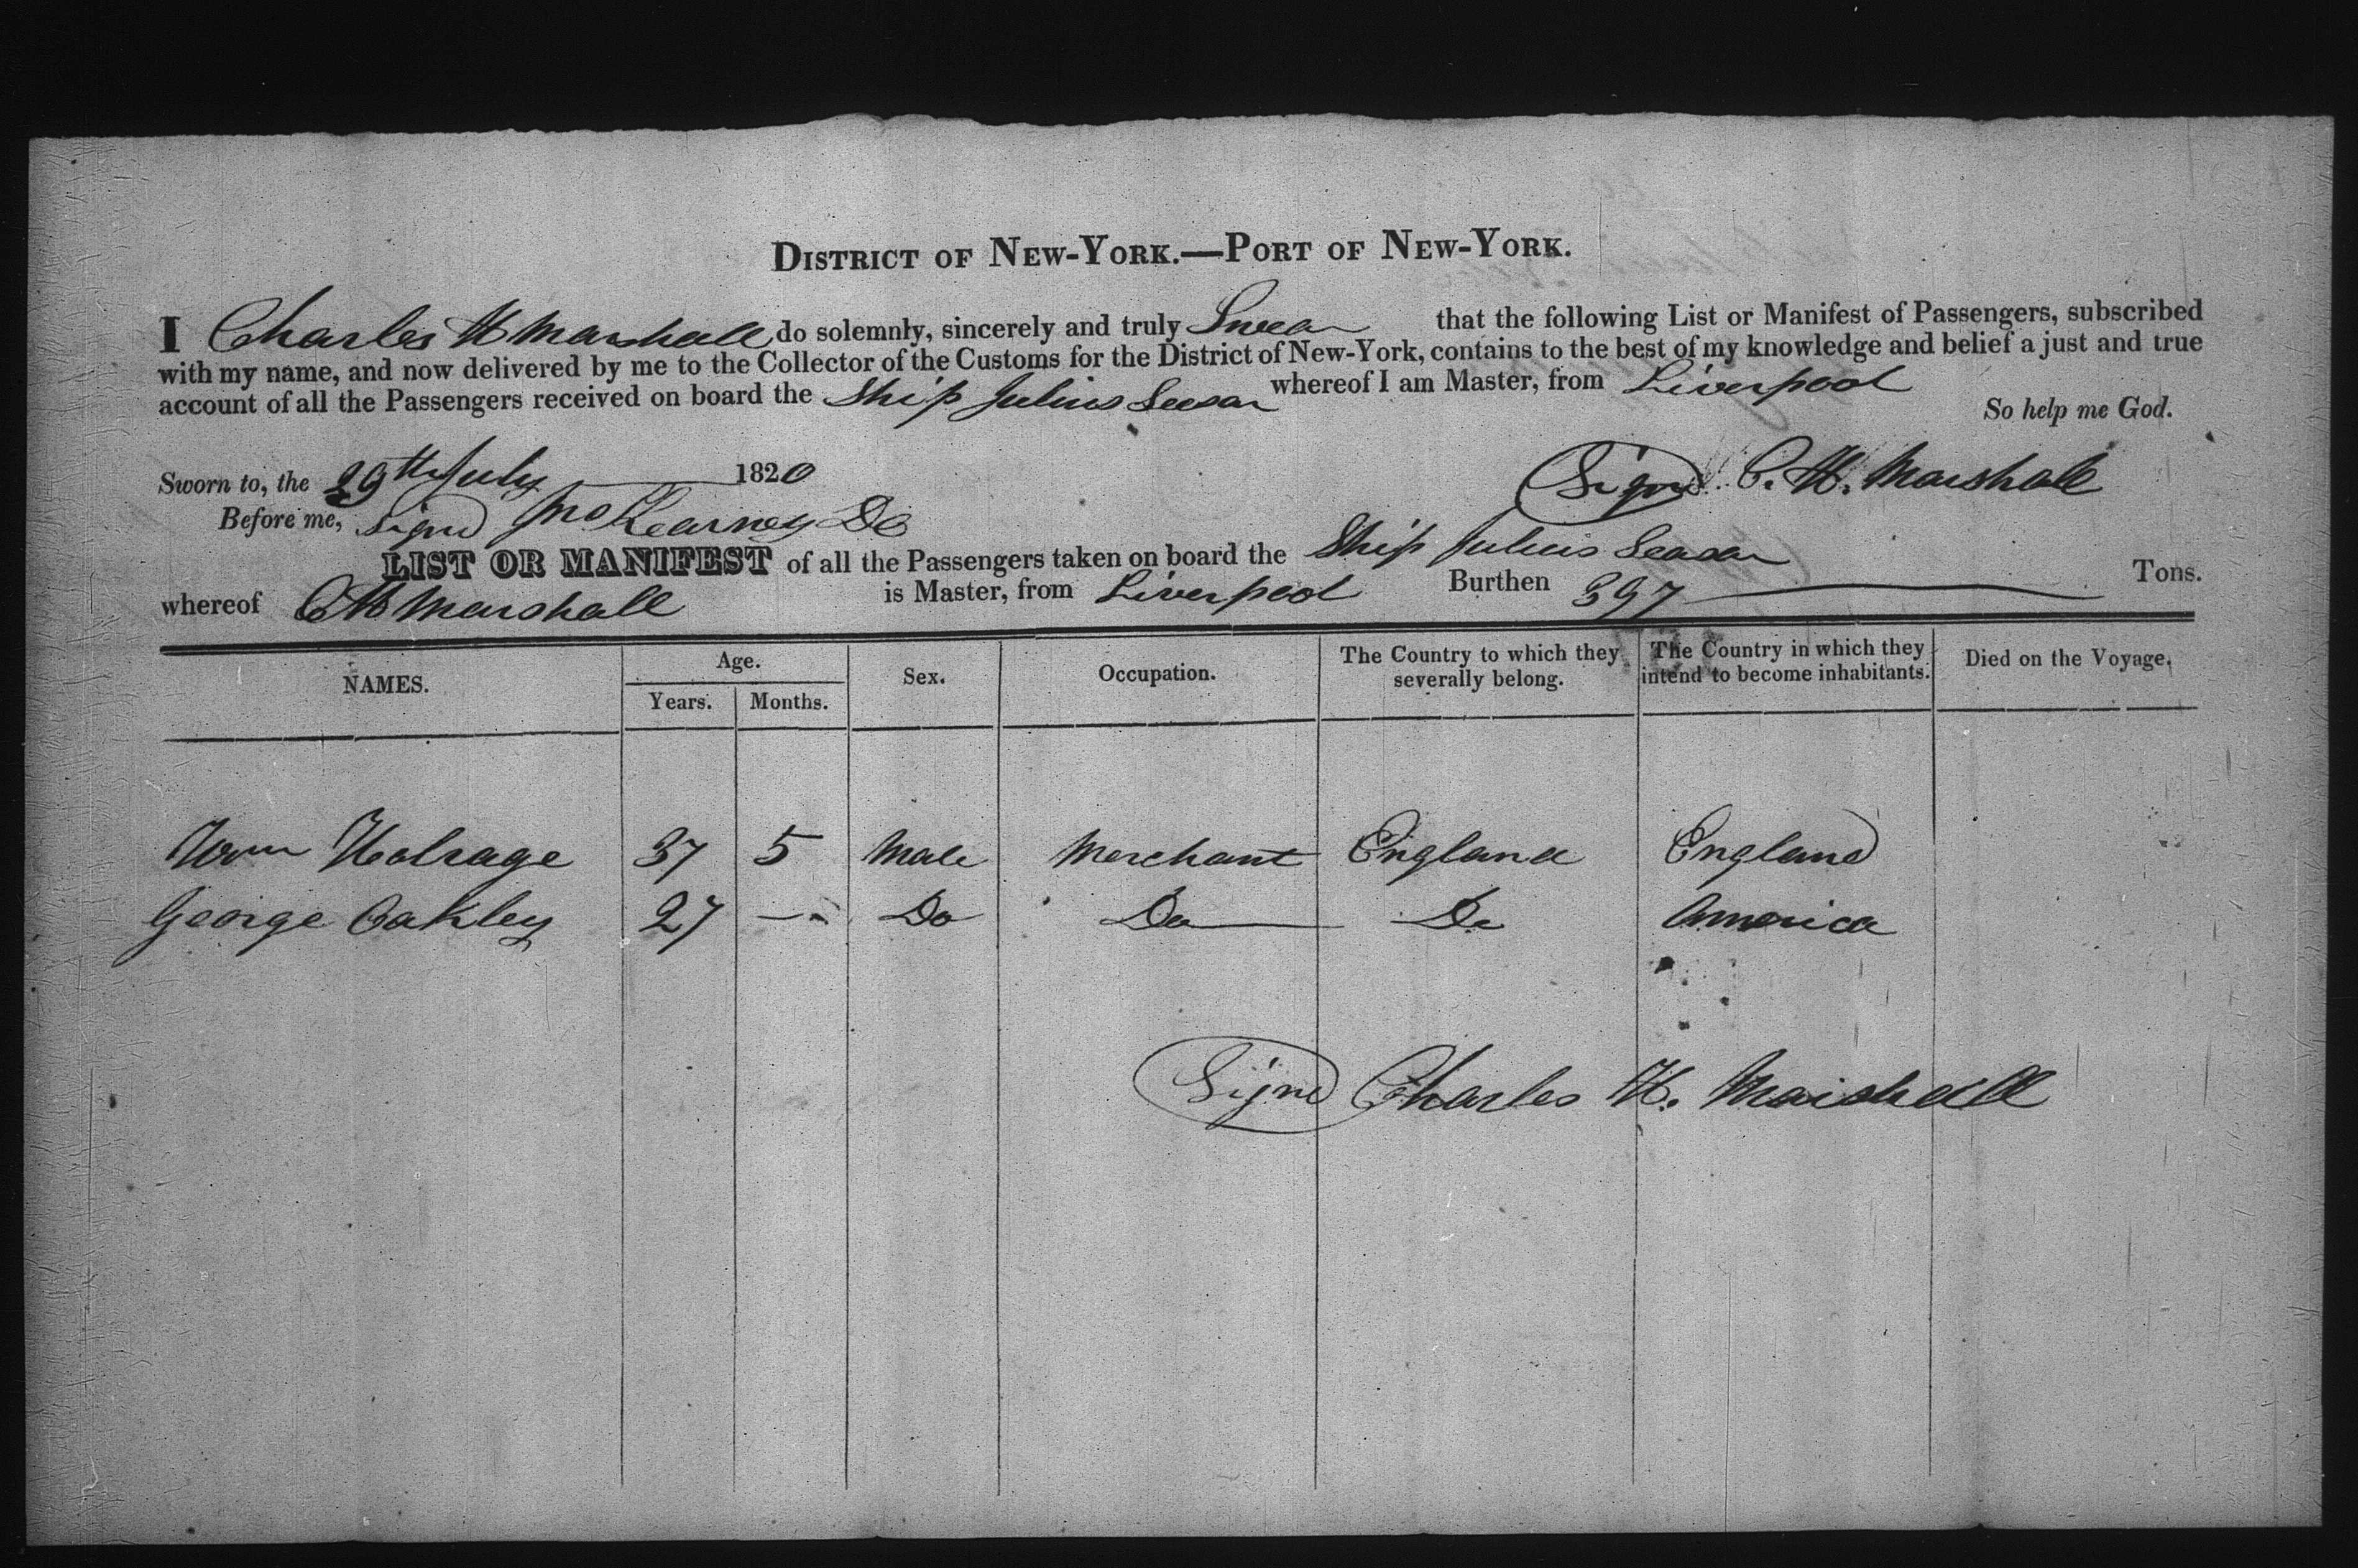 DISTRICT OF NEW-YORK.—PORT OF NEW-YORK.
I Charles H Marshall do solemnly, sincerely and truly Swear that the following List or Manifest of Passengers, subscribed
with my name, and now delivered by me to the Collector of the Customs for the District of New-York, contains to the best of my knowledge and belief a just and true
account of all the Passengers received on board the Ship Julius Seesar whereof I am Master, from Liverpool
So help me God.
Sworn to, the 29th July 1820
Signd C. H. Marshall
Before me, Signd Jno Kearney DC
LIST OR MANIFEST of all the Passengers taken on board the Ship Julius Seasar
whereof C H Marshall is Master, from Liverpool Burthen 397 Tons.
NAMES. Age. Years. Months. Sex. Occupation. The Country to which they severally belong. The Country in which they intend to become inhabitants. Died on the Voyage.
Wm 37 5 Male Merchant England England
George Oakley 27 — Do Do De America
Signd Charles H. Marshall